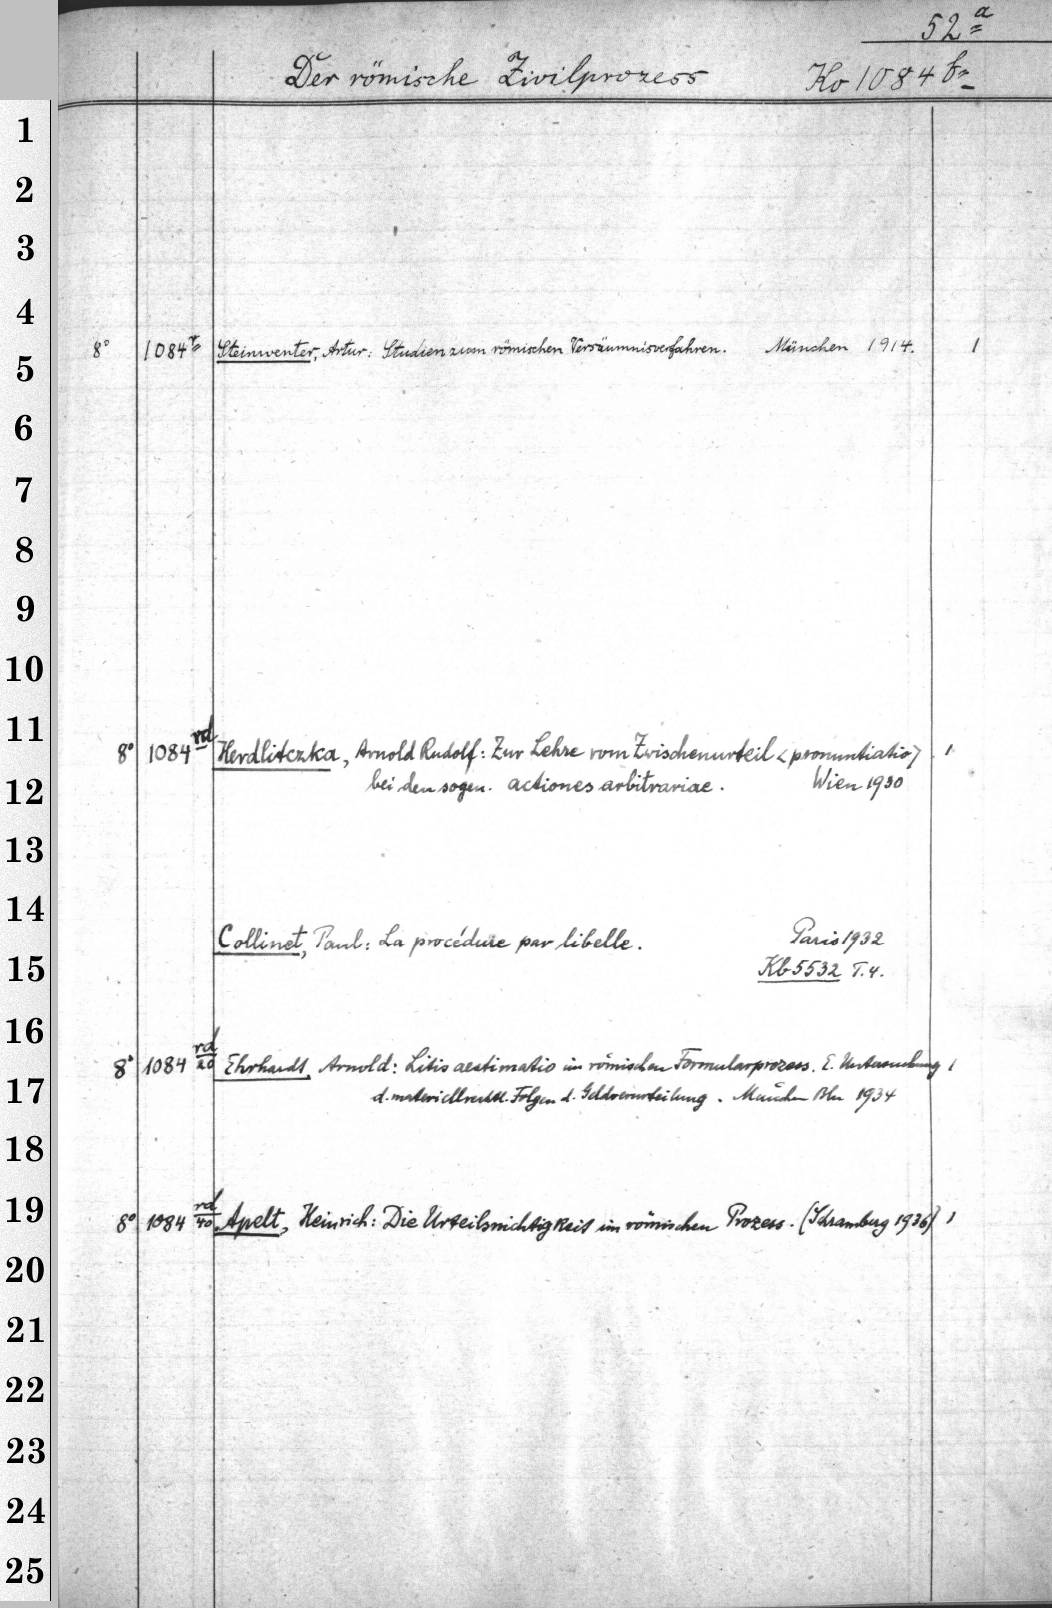 52a
Der römische Zivilprozess Ko 1084 b
1
2
3
4
8° 1084r Steinwenter, Artur: Studien zum römischen Versäumnisverfahren. München 1914. 1
5
6
7
8
9
10
11
8° 1084 rd Herdlitczka, Arnold Rudolf: Zur Lehre vom Zwischenurteil <pronuntiatio> 1
12 bei den sogen. actiones arbitrariae. Wien 1930
13
14
Collinet, Paul: La procédure par libelle. Paris 1932
15 Kb 5532 T. 4.
16
8° 1084 rd/20 Ehrhardt, Arnold: Litis aestimatio im römischen Formularprozess. E. Untersuchung 1
17 d. materiellrechtl. Folgen d. Geldverurteilung. München Bln 1934
18
19
8° 1084 rd/40 Apelt, Heinrich: Die Urteilsnichtigkeit im römischen Prozess. (Schramberg 1936) 1
20
21
22
23
24
25